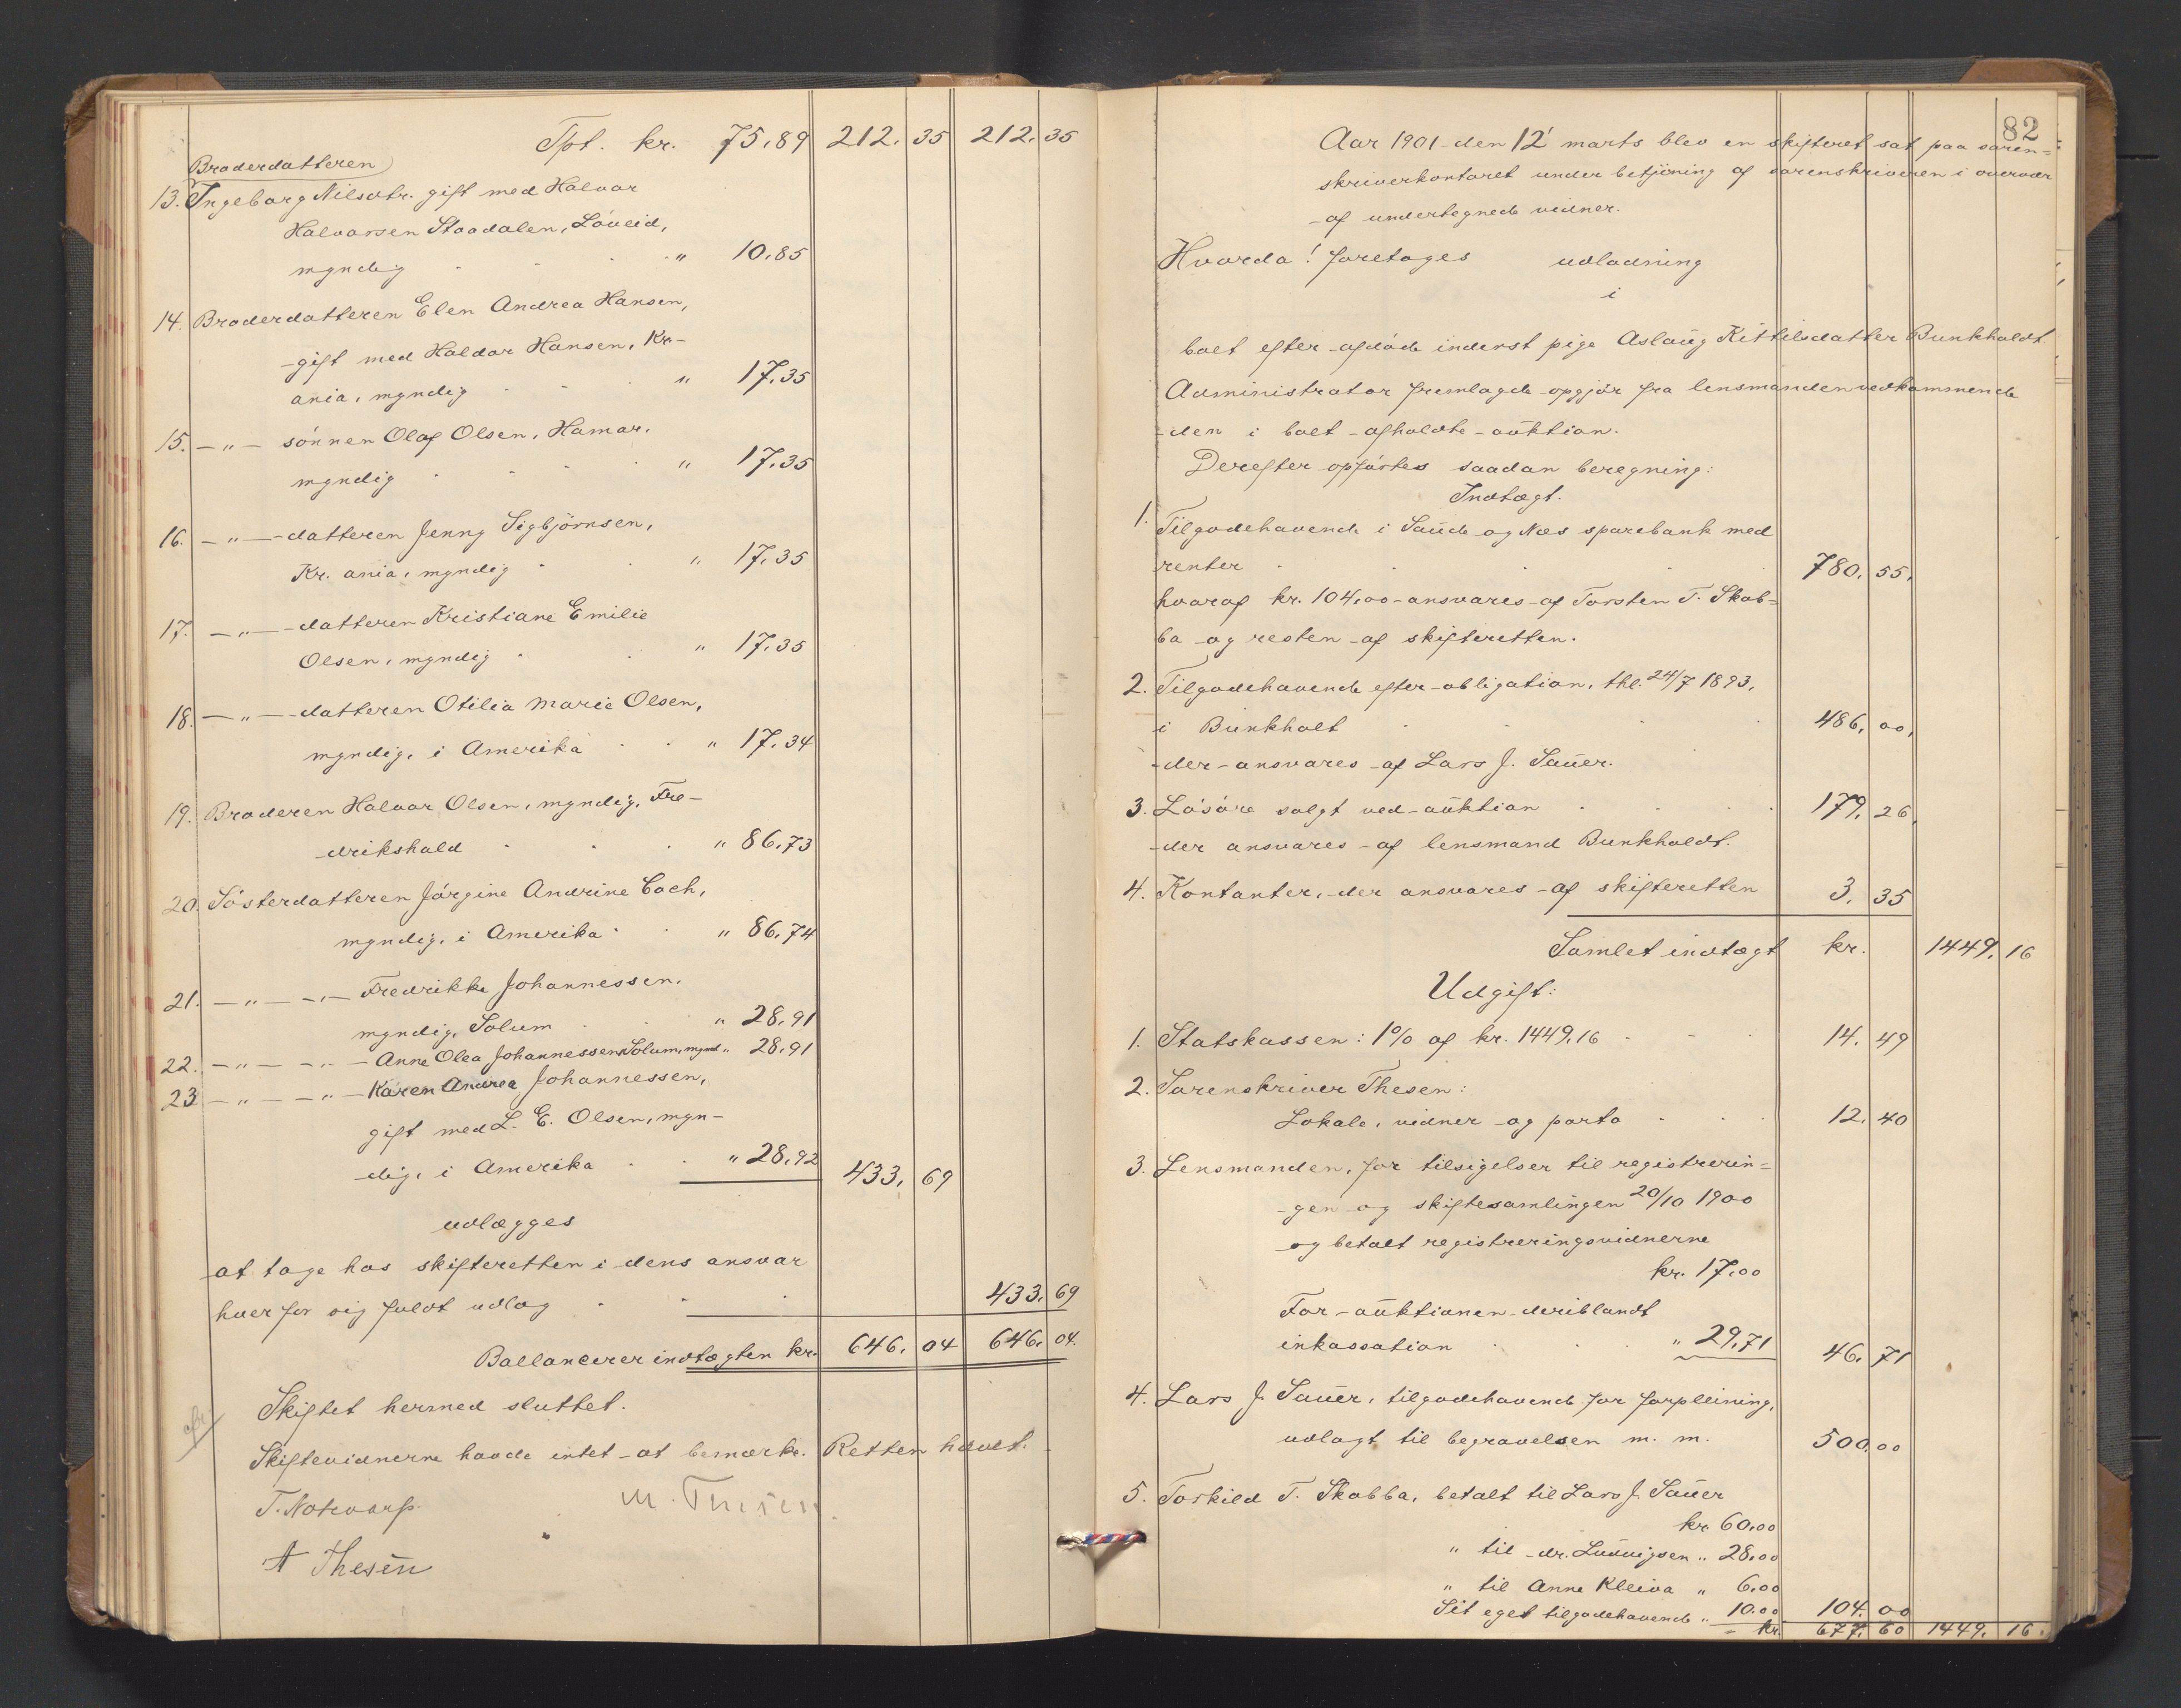 Tpt. kr. 75,89 212, 35 212, 35
Broderdatteren
13. Ingeborg Nilsdtr. gift med Halvor
Halvorsen Staadalen, Löveid,
myndig . . . " 10,85
14. Broderdatteren Elen Andrea Hansen,
gift med Haldor Hansen, Kr-
ania, myndig . . " 17,35
15. — " — sönnen Olaf Olsen, Hamar,
myndig . . . " 17,35
16. — " — datteren Jenny Sigbjörnsen,
Kr. ania, myndig . . " 17,35
17. — " — datteren Kristiane Emilie
Olsen, myndig . . " 17,35
18. — " — datteren Otilia Marie Olsen,
myndig, i Amerika . . " 17,34
19. Broderen Halvor Olsen, myndig, Fre-
drikshald . . . " 86,73
20. Sösterdatteren Jörgine Andrine Coch,
myndig, i Amerika . . " 86,74
21. — " — — " — Fredrikke Johannessen,
myndig, Solum . . " 28,91
22. — " — — " — Anne Olea Johannessen, Solum, mynd. " 28,91
23 — " — — " — Karen Andrea Johannessen,
gift med L. E. Olsen, myn-
dig, i Amerika . . " 28,92 433, 69
udlægges
at tage hos skifteretten i dens ansvar
hver for sig fuldt udlæg . . . 433, 69
Ballancerer indtægten kr. 646, 04 646, 04.
Skiftet hermed sluttet.
Skiftevidnerne havde intet at bemærke. Retten hævet.
M. Thesen.
A Thesen
82
Aar 1901 den 12' marts blev en skifteret sat paa soren-
skriverkontoret under betjöning af sorenskriveren i overvær
af undertegnede vidner.
Hvorda! foretages udlodning
i
boet efter afdöde inderst pige Aslaug Kittilsdatter Bunkholdt.
Administrator fremlagde opgjör fra lensmanden vedkommende
den i boet afholdte auktion.
Derefter opförtes saadan beregning:
Indtægt.
1. Tilgodehavende i Saude og Næs sparebank med
renter . . . . 780, 55,
hvoraf kr. 104,00 ansvares af Torsten T. Skob-
ba og resten af skifteretten.
2. Tilgodehavende efter obligation, thl. 24/7 1893,
i Bunkholt . . . . 486, 00,
der ansvares af Lars J. Sauer.
3. Lösöre solgt ved auktion . . . . 179, 26,
der ansvares af lensmand Bunkholdt.
4. Kontanter, der ansvares af skifteretten 3, 35
Samlet indtægt kr. 1449, 16
Udgift:
1. Statskassen: 1% af kr. 1449,16 . . . 14, 49
2. Sorenskriver Thesen:
Lokale, vidner og porto . . . 12, 40
3. Lensmanden, for tilsigelser til registrerin-
gen og skiftesamlingen 20/10 1900
og betalt registreringsvidnerne
kr. 17,00
For auktionen deriblandt
inkassation . . . " 29,71 46, 71
4. Lars J. Sauer, tilgodehavende for forpleining,
udlagt til begravelsen m. m. 500,00
5. Torkild T. Skobba, betalt til Lars J. Sauer
kr. 60,00
" til dr. Ludvigsen " 28,00
" til Anne Kleiva " 6,00
Sit eget tilgodehavende " 10.00 104, 00
kr. 677, 60 1449, 16.